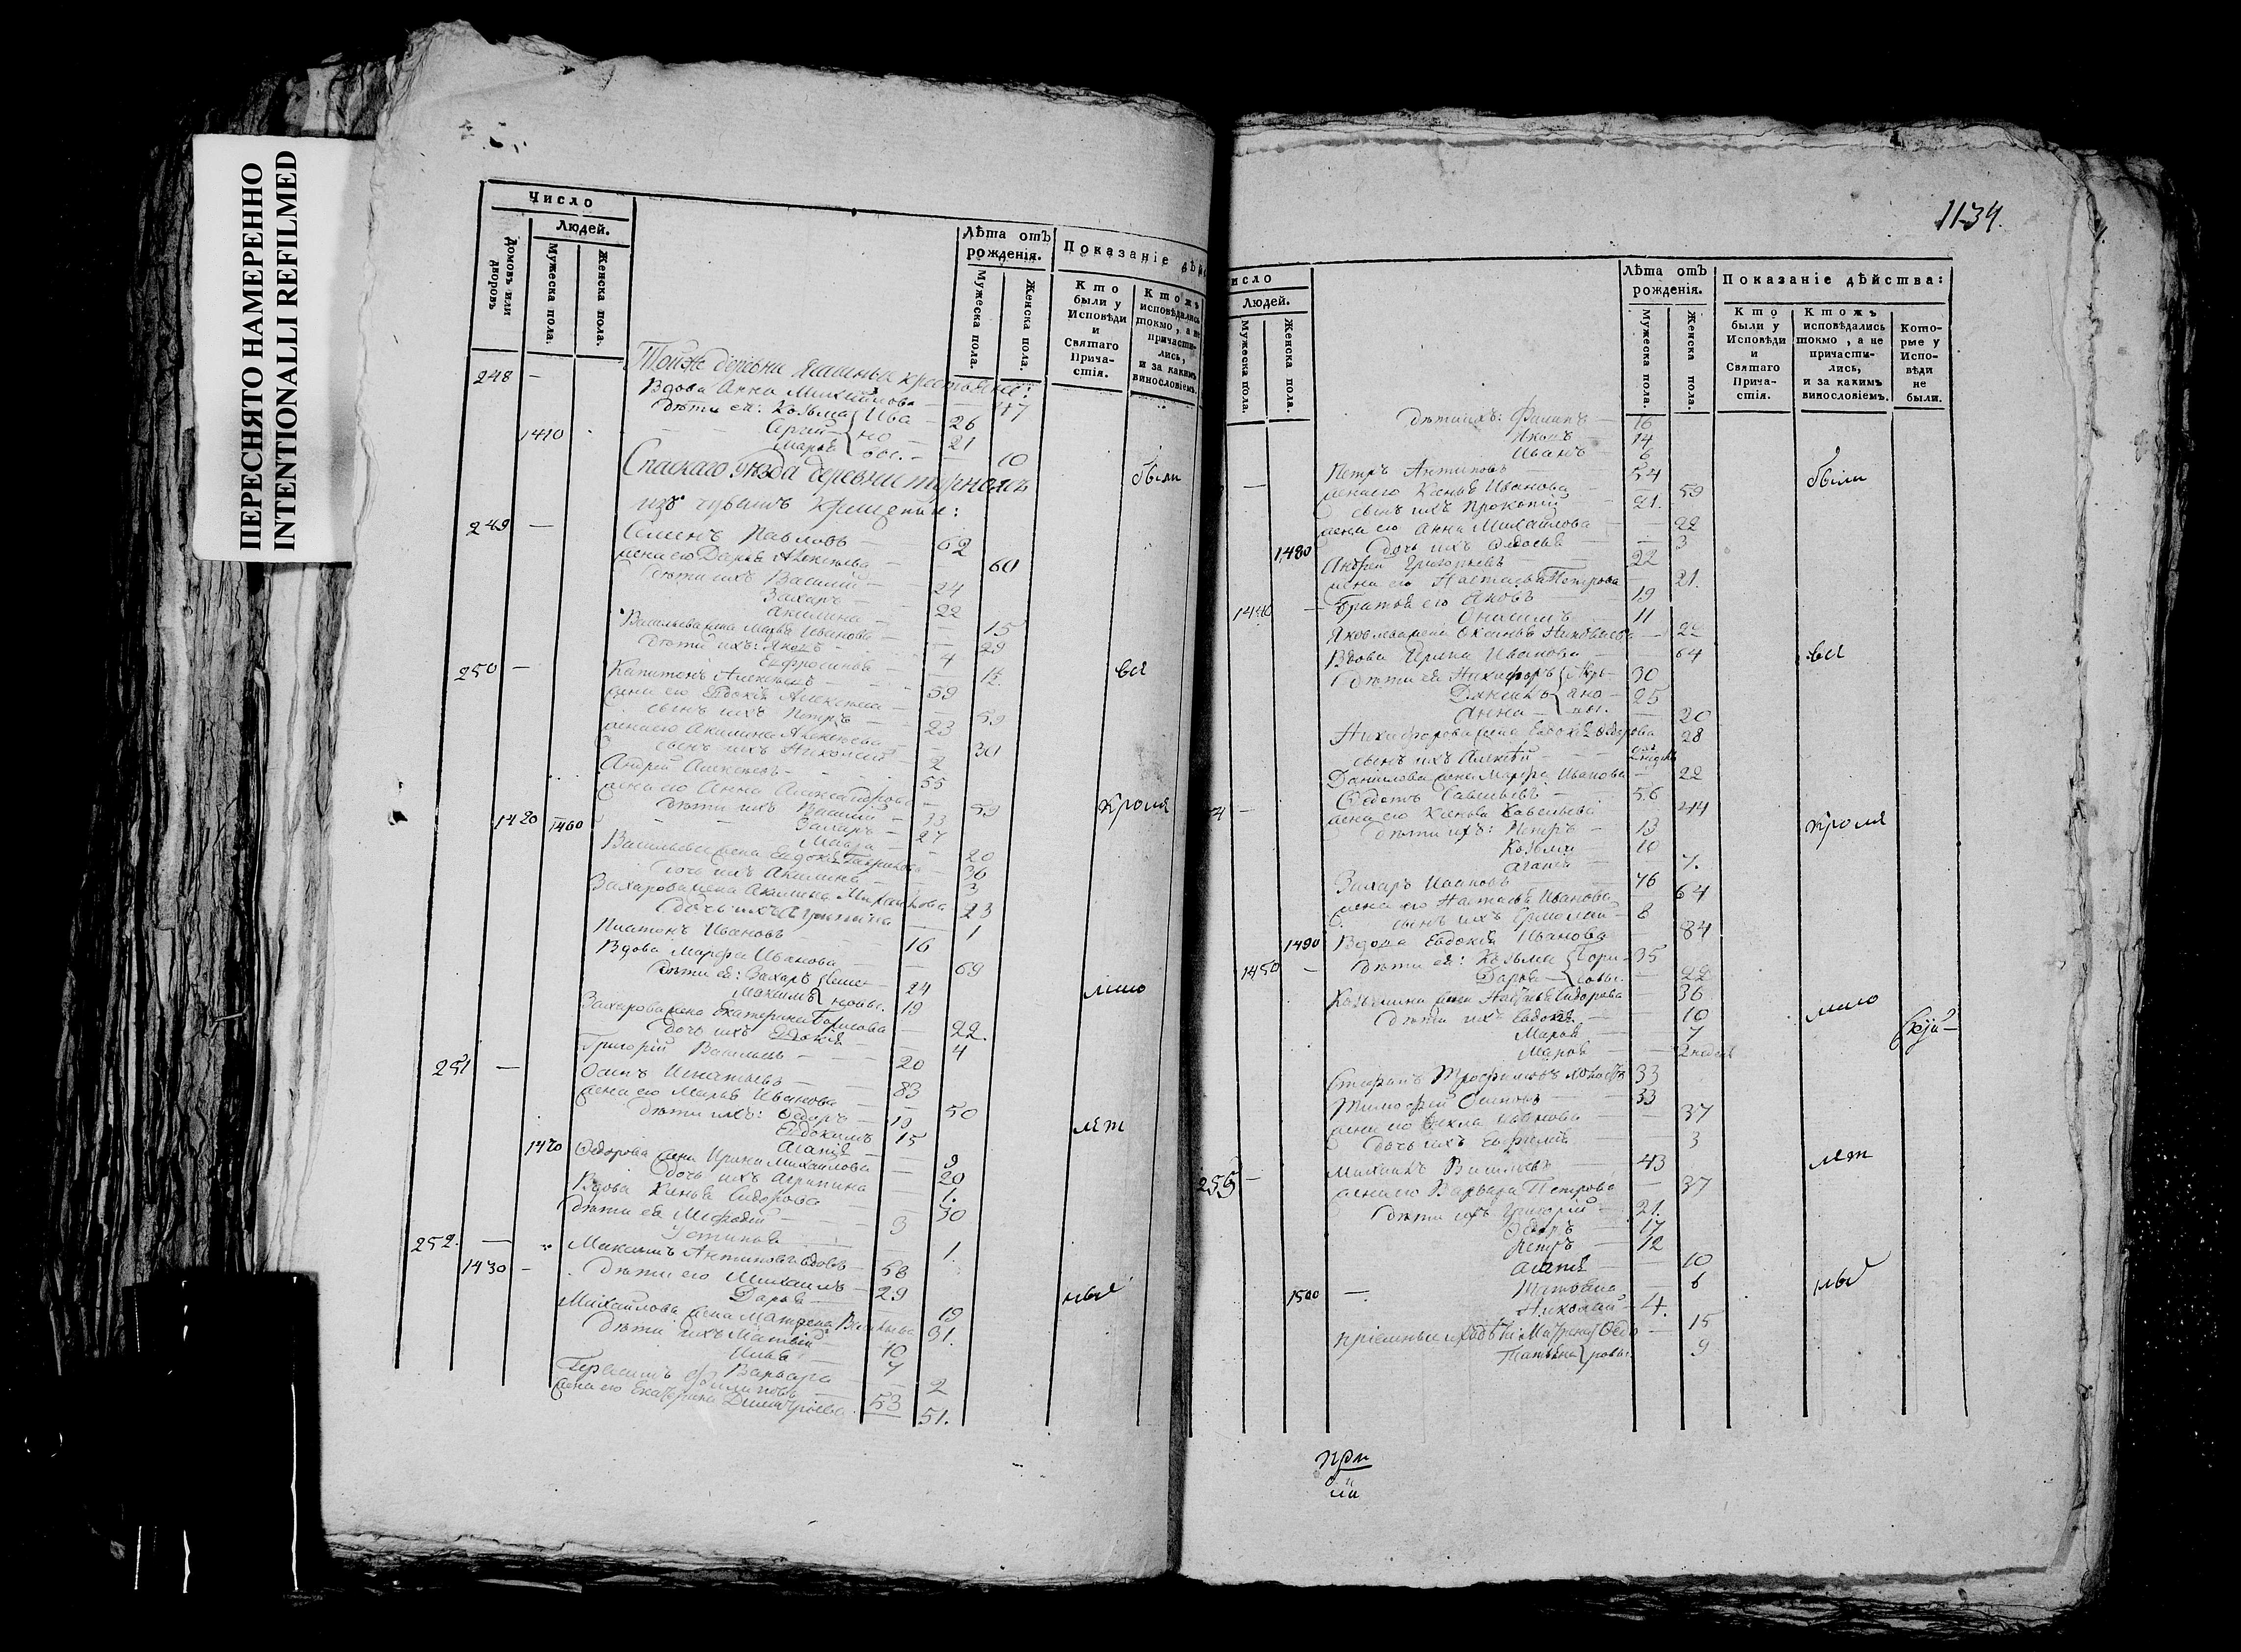 ПЕРЕСНЯТО НАМЕРЕННО
INTENTIONALLI REFILMED
Число
Людей.
Домовъ или дворовъ
Мужеска пола.
Женска пола.
Лѣта отъ рожденія.
Мужеска пола.
Женска пола.
Показаніе дѣй
Кто были у Исповѣди и Святаго Прича- стія.
Ктожъ исповѣдались токмо, а не причасти- лись, и за какимъ винословіемъ.
Тойже деревни крестьяне:
248 — Вдова Анна Михайлова — 47
дѣти ея: Козьма Ива — 26
Сергѣй но — 21
1410 Марья вы. — 10
Спаскаго уѣзда деревни
изъ чувашъ крещеныи: были
249 — Семенъ Павловъ — 62
жена его Дарья Алексѣева — 60
дѣти ихъ Василий — 24
Захаръ — 22
Акилина — 15
Васильева жена Марья Иванова — 29
дѣти ихъ: — 4
Евфросинья — 12
250 — Капитонъ Алексѣевъ — 59 вся
жена его Евдокія Алексѣева — 59
сынъ ихъ Петръ — 23
жена его Акилина Алексѣева — 30
сынъ ихъ Николай — 2
Андрей Алексѣевъ — 55
жена его Анна Александрова — 53
дѣти ихъ Василий — 33 кромя
1420 1460 Захаръ — 27
Мавра — 20
Васильева жена Евдокія — 30
дочь ихъ Акилина — 3
Захарова жена Акилина Михайлова 23
дочь ихъ — 1
Платонъ Ивановъ — 16
Вдова Марфа Иванова — 69
дѣти ея: Захаръ Семе — 24
Максимъ новы. 19 мало
Захарова жена Екатерина Борисова — 22.
дочь ихъ Евдокія — 4
Григорій Васильевъ — 20
251 — Осипъ Игнатьевъ — 83
жена его Марья Иванова — 50
дѣти ихъ: Ѳедоръ — 19
Евдокимъ 15 лѣт
1470 Агапія — 9
Ѳедорова жена Ирина Михайлова — 20
дочь ихъ Агрипина — 1.
Вдова Ксенья Сидорова — 30
дѣти ея Меѳодій — 3
Устинья — 1.
252. — Максимъ Антиповъ вдовъ — 58
1430 — дѣти его Михаилъ — 29
Дарья — 19 ныя
Михайлова жена Матрена Васильева 31.
дѣти ихъ Матвѣй 10
Илья 7
Варвара — 2
Герасимъ Филиповъ — 53
жена его Екатерина Димитріева. 51.
1134.
исло
Людей.
Мужеска пола.
Женска пола.
Лѣта отъ рожденія.
Мужеска пола.
Женска пола.
Показаніе дѣйства:
Кто были у Исповѣди и Святаго Прича- стія.
Ктожъ исповѣдались токмо, а не причасти- лись, и за какимъ винословіемъ.
Кото- рые у Испо- вѣди не были.
дѣти ихъ: Филипъ — 16
Яковъ — 14
Иванъ — 6
Петръ Антиповъ — 54 были
жена его Ксенья Иванова — 59
сынъ ихъ Прокопій — 21.
жена его Анна Михайлова — 22
1480 дочь ихъ Ѳедосья — 3
Андрей Григорьевъ — 22
жена его Настасья Петрова — 21.
братья его Яковъ — 19
1440 — Онисимъ — 11
Яковлева жена Оксинья — 22
Вдова Ирина Иванова — 64 вся
дѣти ея Никифоръ — 30
Данилъ — 25
Анна — 20
Никифорова жена Евдокія Ѳедорова 28
сынъ ихъ Алексѣй —
Данилова жена Марфа Иванова — 22
Ѳедотъ Савельевъ — 56
жена его Ксенья Савельева 44
дѣти ихъ: Петръ — 13 кромя
Козьма — 10
Агапія — 7.
Захаръ Ивановъ — 76
жена его Настасья Иванова — 64
сынъ ихъ Ермолай — 8
1490 Вдова Евдокія Иванова — 84
дѣти ея: Козьма Бори — 35
1450 — Дарья совы. — 22
Козьмина жена Настасья Сидорова — 36
дѣти ихъ Евдокія — 10 мало
Марья — 7
Марья — 2 недели
Стефанъ Трофимовъ 33
Тимофей Осиповъ — 33
жена его Ѳекла Иванова 37
дочь ихъ Евфимія — 3
Михаилъ Васильевъ — 43 лѣт
255 — жена его Варвара Петрова — 37
дѣти ихъ Григорій — 21.
Ѳедоръ — 17
Петръ — 12
Агапія — 10
Татьяна — 6 ныя
1500 — Николай — 4.
пріемныи Матрена Ѳедо — 15
Татьяна ровы. 9